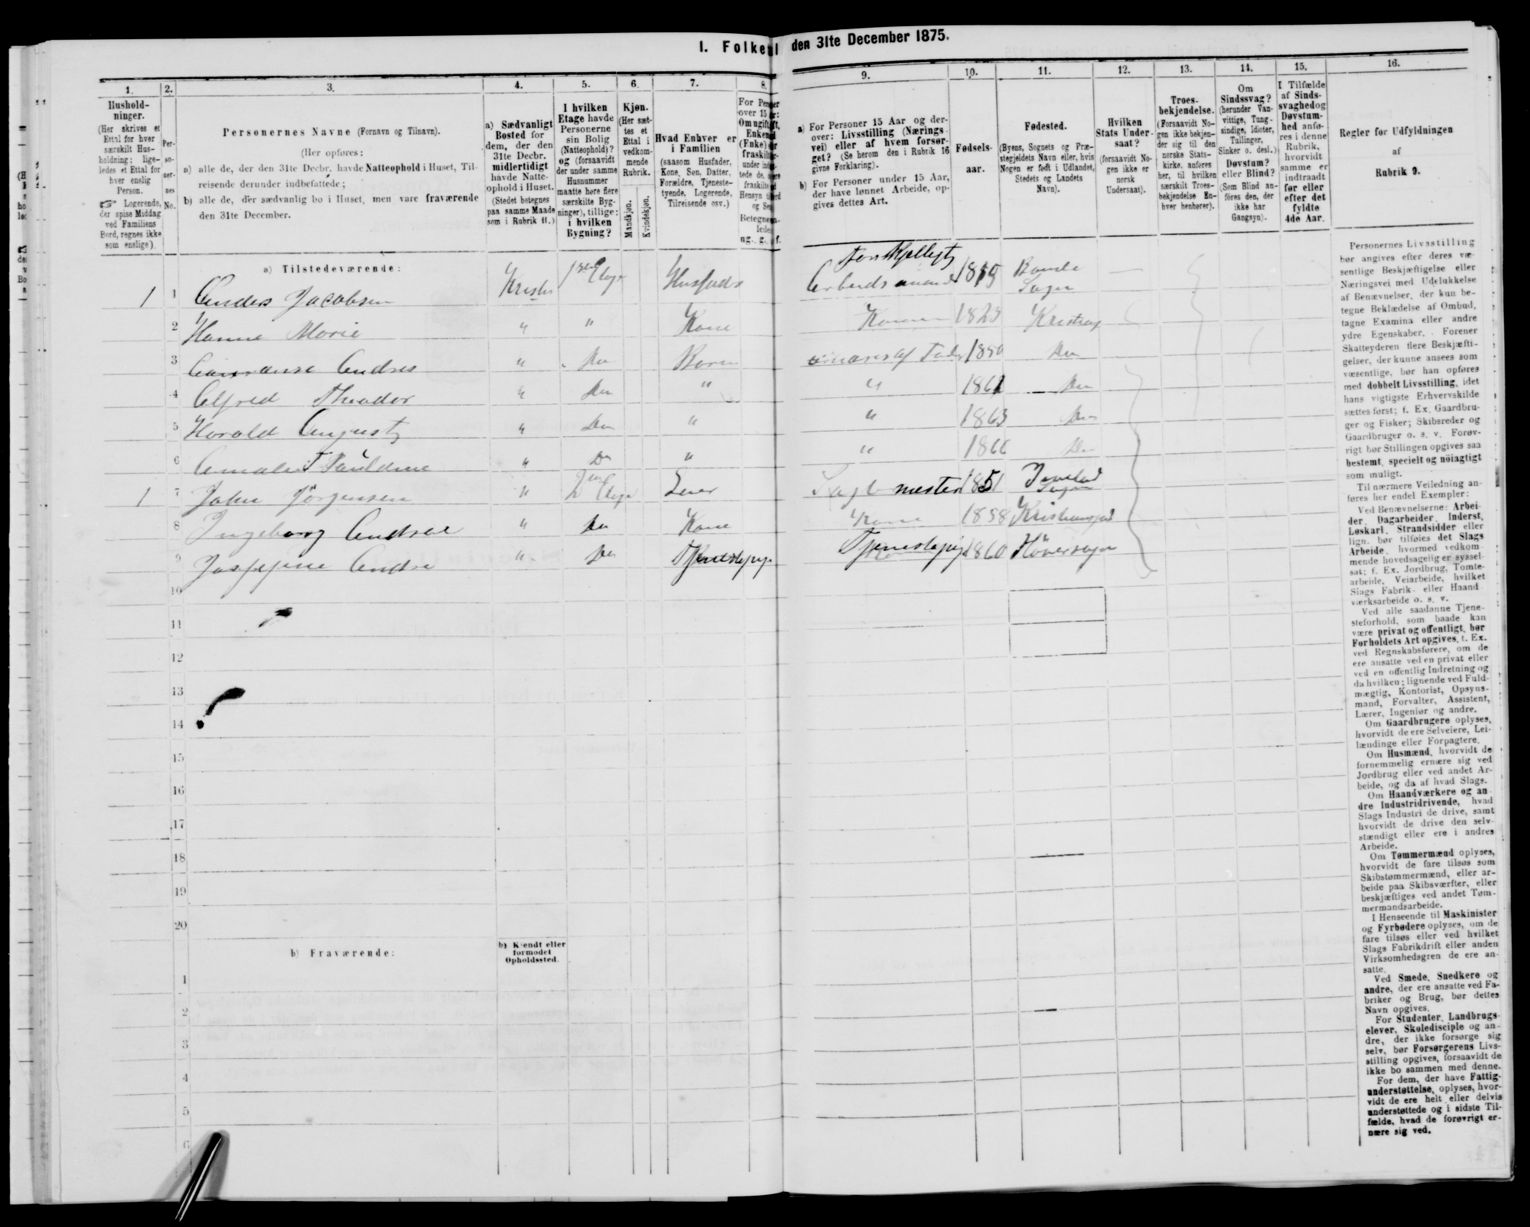 I. Folket den 31te December 1875.
1. 2. 3. 4. 5. 6. 7. 8. 9. 10. 11. 12. 13. 14. 15. 16.
Hushold-
ninger.
(Her skrives et
Ettal for hver
særskilt Hus-
holdning; lige-
ledes et Ettal for
hver enslig
Person.
Logerende,
der spise Middag
ved Familiens
Bord, regnes ikke
som enslige).
Per-
so-
ner-
nes
No.
Personernes Navne (Fornavn og Tilnavn).
(Her opføres:
a) alle de, der den 31te Decbr. havde Natteophold i Huset, Til-
reisende derunder indbefattede;
b) alle de, der sædvanlig bo i Huset, men vare fraværende
den 31te December.
a) Sædvanligt
Bosted for
dem, der den
31te Decbr.
midlertidigt
havde Natte-
ophold i Huset.
(Stedet betegnes
paa samme Maade
som i Rubrik 11.)
I hvilken
Etage havde
Personerne
sin Bolig
(Natteophold)?
og (forsaavidt
der under samme
Husnummer
maatte høre flere
særskilte Byg-
ninger), tillige:
i hvilken
Bygning?
Kjøn.
(Her sæt-
tes et
Ettal i
vedkom-
mende
Rubrik.
Mandkjøn.
Kvindekjøn.
Hvad Enhver er
i Familien
(saasom Husfader,
Kone, Søn, Datter,
Forældre, Tjeneste-
tyende, Logerende,
Tilreisende osv.)
a) For Personer 15 Aar og der-
over: Livsstilling (Nærings-
vei) eller af hvem forsør-
get? (Se herom den i Rubrik 16
givne Forklaring).
b) For Personer under 15 Aar,
der have lønnet Arbeide, op-
gives dettes Art.
Fødsels-
aar.
Fødested.
(Byens, Sognets og Præ-
stegjeldets Navn eller, hvis
Nogen er født i Udlandet,
Stedets og Landets
Navn).
Hvilken
Stats Under-
saat?
(forsaavidt No-
gen ikke er
norsk
Undersaat).
Troes-
bekjendelse.
(Forsaavidt No-
gen ikke bekjen-
der sig til den
norske Stats-
kirke, anføres
her, til hvilken
særskilt Troes-
bekjendelse En-
hver henhører).
Om
Sindssvag?
(herunder Van-
vittige, Tung-
sindige, Idioter,
Tullinger,
Sinker o. desl.)
Døvstum?
eller Blind?
(Som Blind an-
føres den, der
ikke har
Gangsyn).
I Tilfælde
af Sinds-
svaghed og
Døvstum-
hed anfø-
res i denne
Rubrik,
hvorvidt
samme er
indtraadt
før eller
efter det
fyldte
4de Aar.
Regler for Udfyldningen
af
Rubrik 9.
a) Tilstedeværende:
1 1 Anders Jacobsen Husfader Arbeidsmand 1815
2 Hanne Marie " " Kone Konen 1823
3 " Do Barn 1850 Do
4 Alfred Theodor " Do " " 1861 Do
5 Harald August " Do " " 1863 Do
6 " Do " " 1866 Do
1 7 John Jørgensen " 1851
8 Ingeborg " Do Kone Kone 1858
9 " Do Tjenestepige Tjenestepige 1860
10
11
12
13
14
15
16
17
18
19
20
b) Fraværende:
b) Kjendt eller
formodet
Opholdssted.
1
2
3
4
5
6
Personernes Livsstilling
bør angives efter deres væ-
sentlige Beskjæftigelse eller
Næringsvei med Udelukkelse
af Benævnelser, der kun be-
tegne Beklædelse af Ombud,
tagne Examina eller andre
ydre Egenskaber. Forener
Skatteyderen flere Beskjæfti-
gelser, der kunne ansees som
væsentlige, bør han opføres
med dobbelt Livsstilling, idet
hans vigtigste Erhvervskilde
sættes først; f. Ex. Gaardbru-
ger og Fisker; Skibsreder og
Gaardbruger o. s. v. Forøv-
rigt bør Stillingen opgives saa
bestemt, specielt og nøiagtigt
som muligt.
Til nærmere Veiledning an-
føres her endel Exempler:
Ved Benævnelserne: Arbei-
der, Dagarbeider, Inderst,
Løskarl, Strandsidder eller
lign. bør tilføies det Slags
Arbeide, hvormed vedkom-
mende hovedsagelig er syssel-
sat; f. Ex. Jordbrug, Tomte-
arbeide, Veiarbeide, hvilket
Slags Fabrik- eller Haand
værksarbeide o. s. v.
Ved alle saadanne Tjene-
steforhold, som baade kan
være privat og offentligt, bør
Forholdets Art opgives, t. Ex.
ved Regnskabsførere, om de
ere ansatte ved en privat eller
ved en offentlig Indretning og
da hvilken; lignende ved Fuld-
mægtig, Kontorist, Opsyns-
mand, Forvalter, Assistent,
Lærer, Ingeniør og andre.
Om Gaardbrugere oplyses,
hvorvidt de ere Selveiere, Lei-
lændinge eller Forpagtere.
Om Husmænd, hvorvidt de
fornemmelig ernære sig ved
Jordbrug eller ved andet Ar-
beide, og da af hvad Slags.
Om Haandværkere og an
dre Industridrivende, hvad
Slags Industri de drive, samt
hvorvidt de drive den selv-
stændigt eller ere i andres
Arbeide.
Om Tømmermænd oplyses,
hvorvidt de fare tilsøs som
Skibstømmermænd, eller ar-
beide paa Skibsværfter, eller
beskjæftiges ved andet Tøm-
mermandsarbeide.
I Henseende til Maskinister
og Fyrbødere oplyses, om de
fare tilsøs eller ved hvilket
Slags Fabrikdrift eller anden
Virksomhedsgren de ere an-
satte.
Ved Smede, Snedkere og
andre, der ere ansatte ved Fa-
briker og Brug, bør dettes
Navn opgives.
For Studenter, Landbrugs-
elever, Skoledisciple og an-
dre, der ikke forsørge sig
selv, bør Forsørgerens Livs-
stilling opgives, forsaavidt de
ikke bo sammen med denne.
For dem, der have Fattig-
understøttelse, oplyses, hvor-
vidt de ere helt eller delvis
understøttede og i sidste Til-
fælde, hvad de forøvrigt er-
nære sig ved.